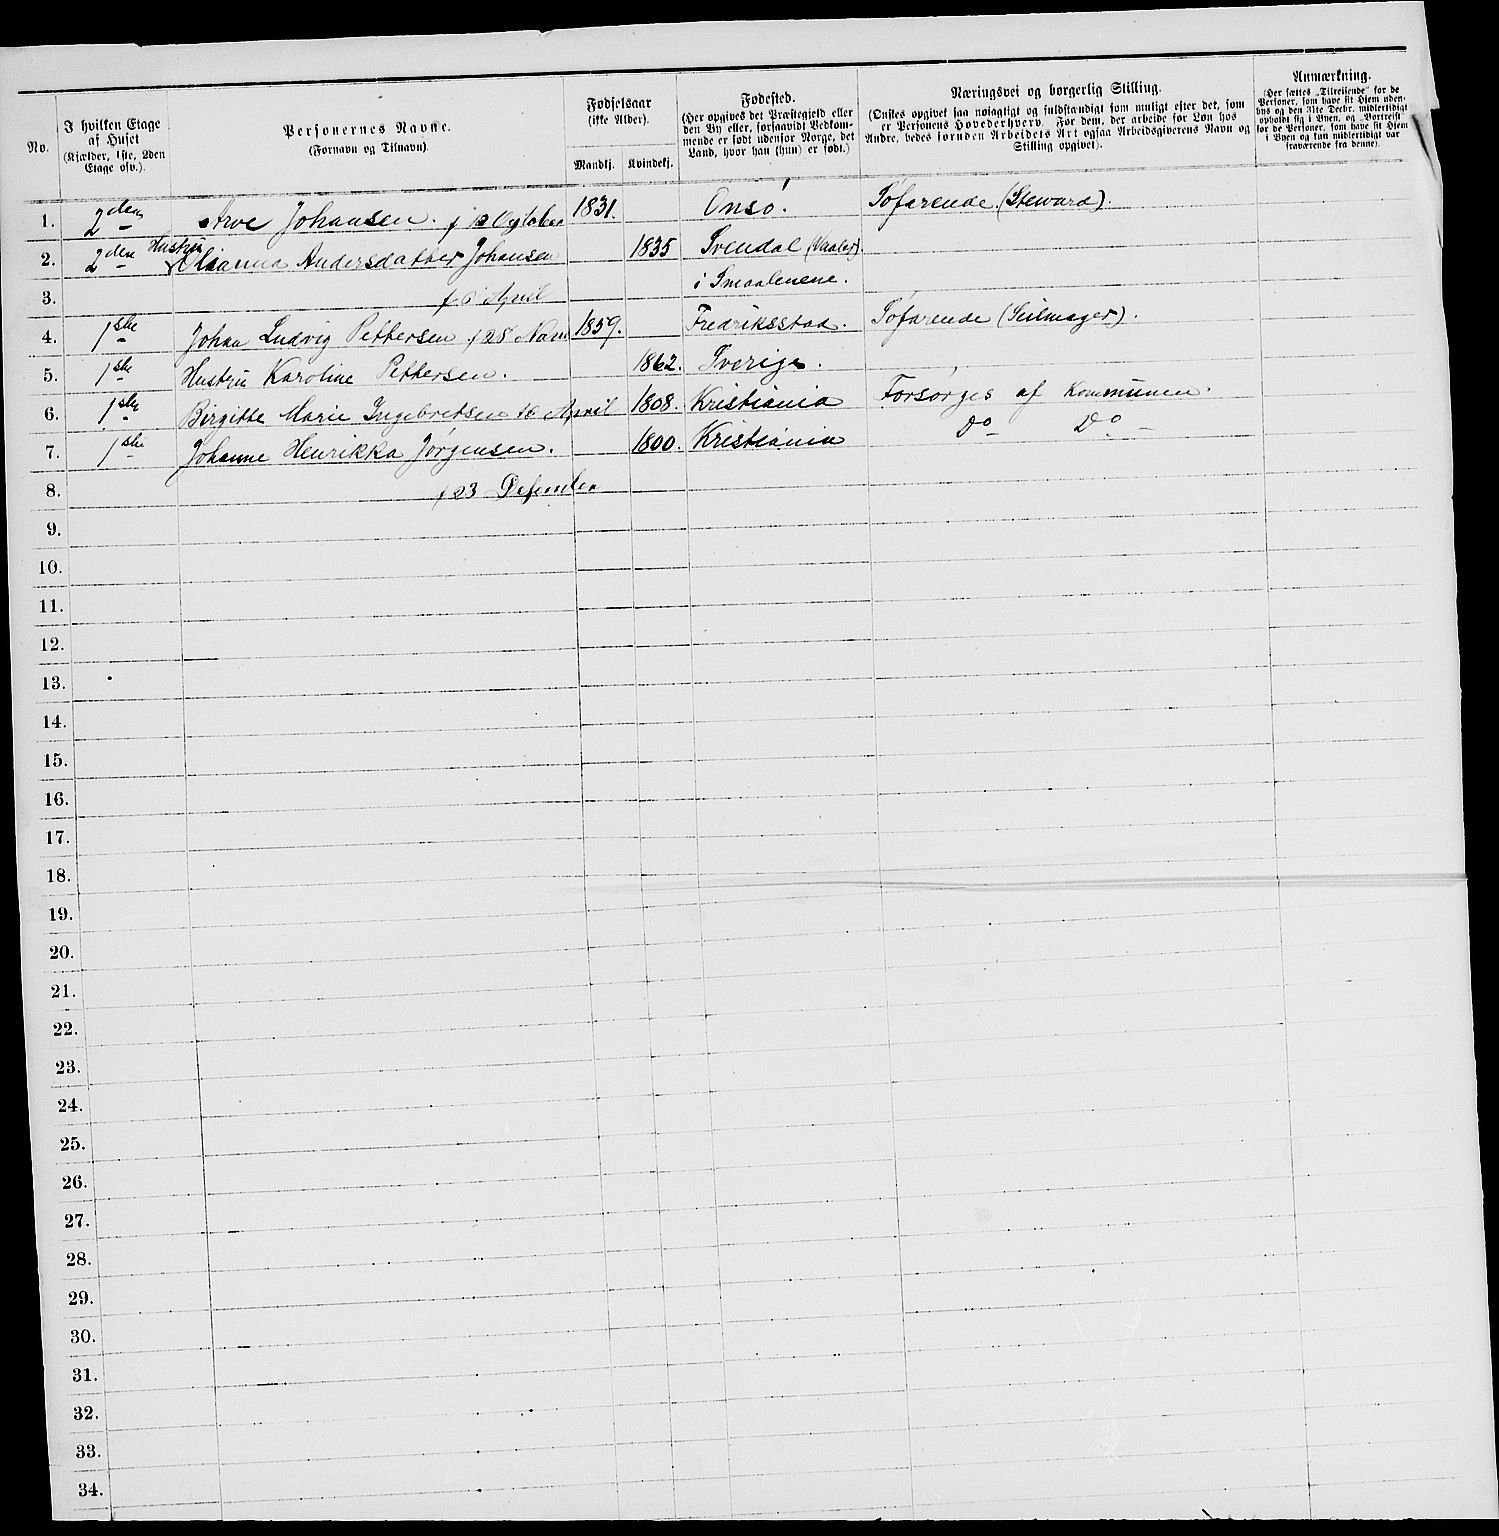 No.
I hvilken Etage
af Huset
(Kjælder, 1ste, 2den
Etage osv.).
Personernes Navne.
(Fornavn og Tilnavn).
Fødselsaar
(ikke Alder).
Mandkj. Kvindekj.
Fødested.
(Her opgives det Præstegjeld eller
den By eller, forsaavidt Vedkom-
mende er født udenfor Norge, det
Land, hvor han (hun) er født.)
Næringsvei og borgerlig Stilling.
(Ønskes opgivet saa nøiagtigt og fuldstændigt som muligt efter det, som
er Personens Hovederhverv. For dem, der arbeide for Løn hos
Andre, bedes foruden Arbeidets Art ogsaa Arbeidsgiverens Navn og
Stilling opgivet).
Anmærkning.
(Her sættes „Tilreisende“ for de
Personer, som have sit Hjem uden-
bys og den 31te Decbr. midlertidigt
opholdt sig i Byen, og „Bortreist“
for de Personer, som have sit Hjem
i Byen og kun midlertidigt var
fraværende fra denne).
1. 2den Arve Johansen. f October 1831. Onsø. Søfarende (Steward).
2. 2den Hustru Andersdatter Johansen 1835 Svendal (Vaaler)
3. f April i Smaalenene.
4. 1ste Johan Ludvig Pettersen f 28 Novm 1859. Fredriksstad. Søfarende (Seilmager).
5. 1ste Hustru Karoline Pettersen. 1862. Sverige.
6. 1ste Birgitte Marie Ingebretsen 16 April 1808. Kristiania Forsørges af Kommunen
7. 1ste Johanne Henrikka Jørgensen. 1800. Kristiania Do Do
8. f 23 Desember
9.
10.
11.
12.
13.
14.
15.
16.
17.
18.
19.
20.
21.
22.
23.
24.
25.
26.
27.
28.
29.
30.
31.
32.
33.
34.